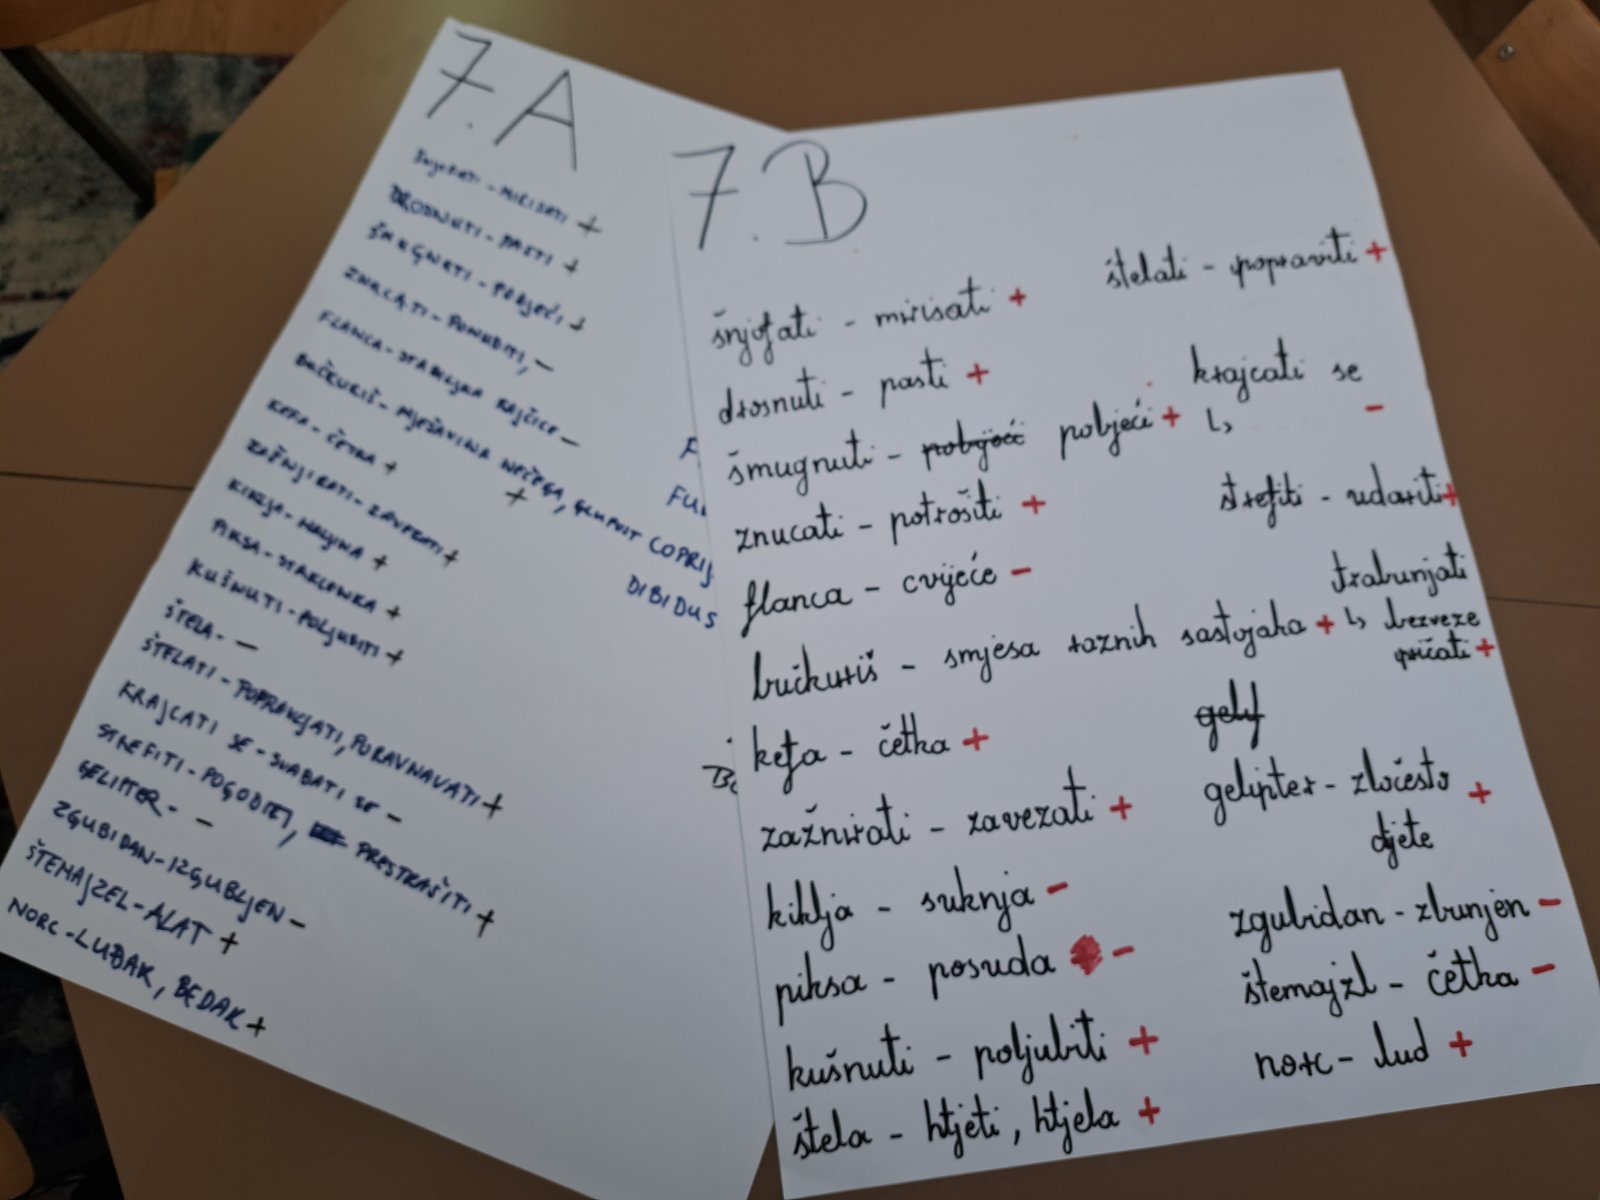 7. A
ŠNJOFATI - MIRISATI +
DROSNUTI - PASTI +
ŠMUGNUTI - POBJEĆI +
ZNUCATI - PONUDITI, -
FLANCA - STABLJIKA RAJČICE -
BUČKURIŠ - MJEŠAVINA NEČEGA, GLUPOST
+
KEFA - ČETKA +
ZAŽNJIRATI - ZAVEZATI +
KIKLJA - HALJINA +
PIKSA - STAKLENKA +
KUŠNUTI - POLJUBITI +
ŠTELA - -
ŠTELATI - POPRAVLJATI, PORAVNAVATI +
KRAJCATI SE - SVAĐATI SE -
STREFITI - POGODITI, PRESTRAŠITI +
GELIPTER - -
ZGUBIDAN - IZGUBLJEN -
ŠTEMAJZEL - ALAT +
NORC - LUĐAK, BEDAK +
F
FU
COPRIJ
DIBIDUS
7. B
šnjofati - mirisati +
drosnuti - pasti +
šmugnuti - pobjeći +
znucati - potrošiti +
flanca - cvijeće -
bućkuriš - smjesa raznih sastojaka +
kefa - četka +
zažnirati - zavezati +
kiklja - suknja -
piksa - posuda -
kušnuti - poljubiti +
štela - htjeti, htjela +
štelati - popraviti +
krajcati se
↳ -
strefiti - udariti +
trabunjati
↳ bezveze
pričati +
gelif
gelipter - zločesto +
djete
zgubidan - zbunjen -
štemajzl - četka -
norc - lud +